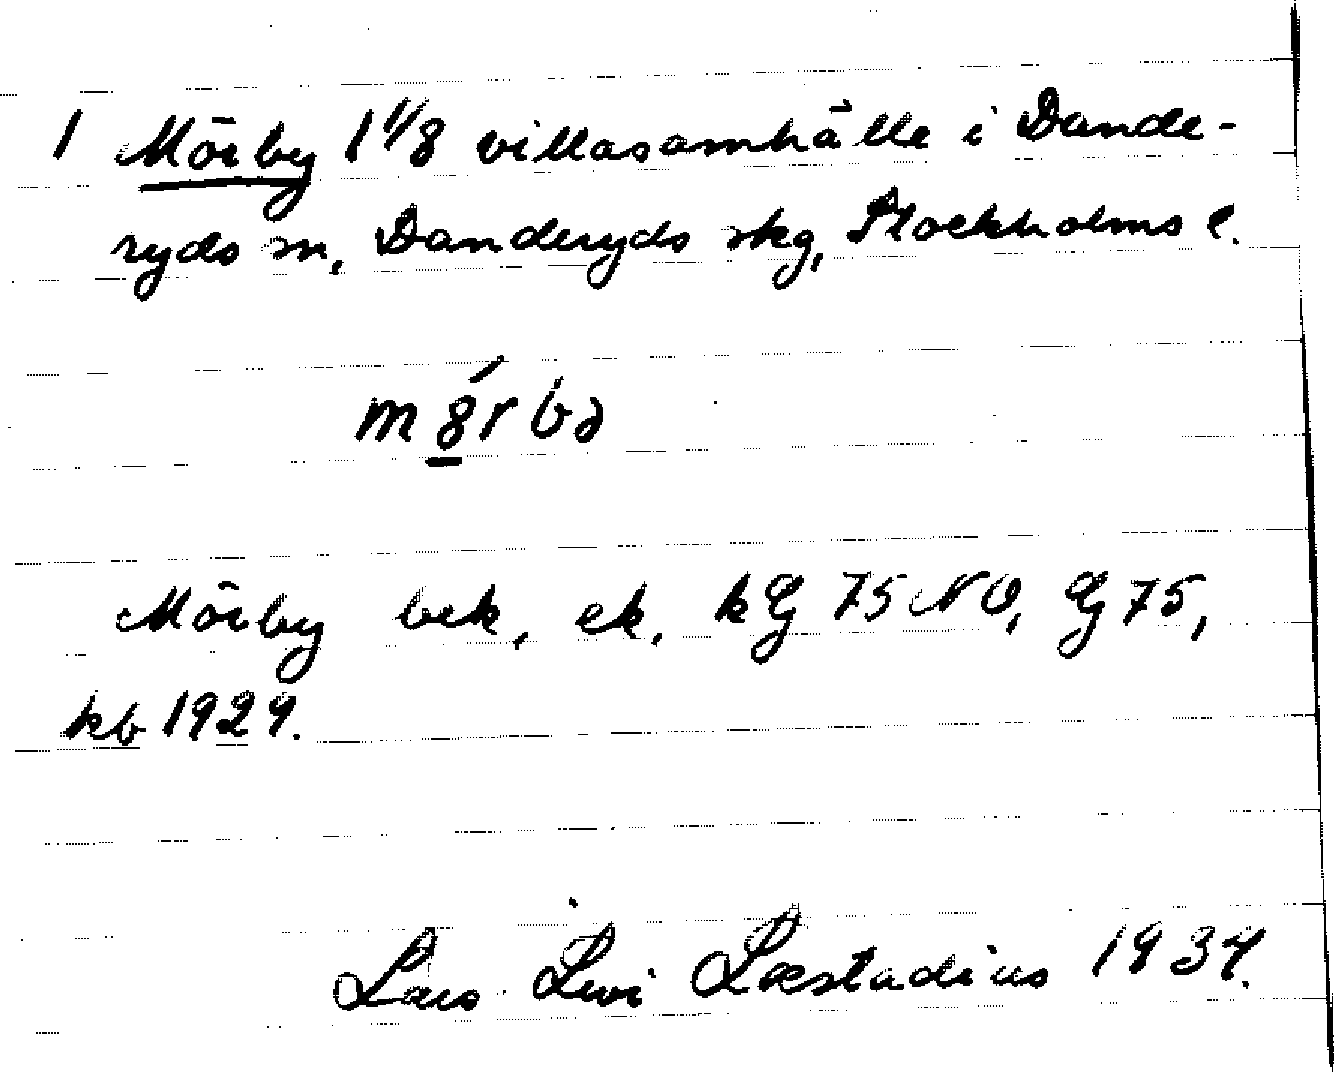 1 Mörby 1 1/8 villasamhälle i Dande-
ryds sn, Danderyds skg, Stockholms l.
Mörby bek, ek, kg 75 NO, Lg 75,
kb 1929.
Lars Levi Læstadius 1934.